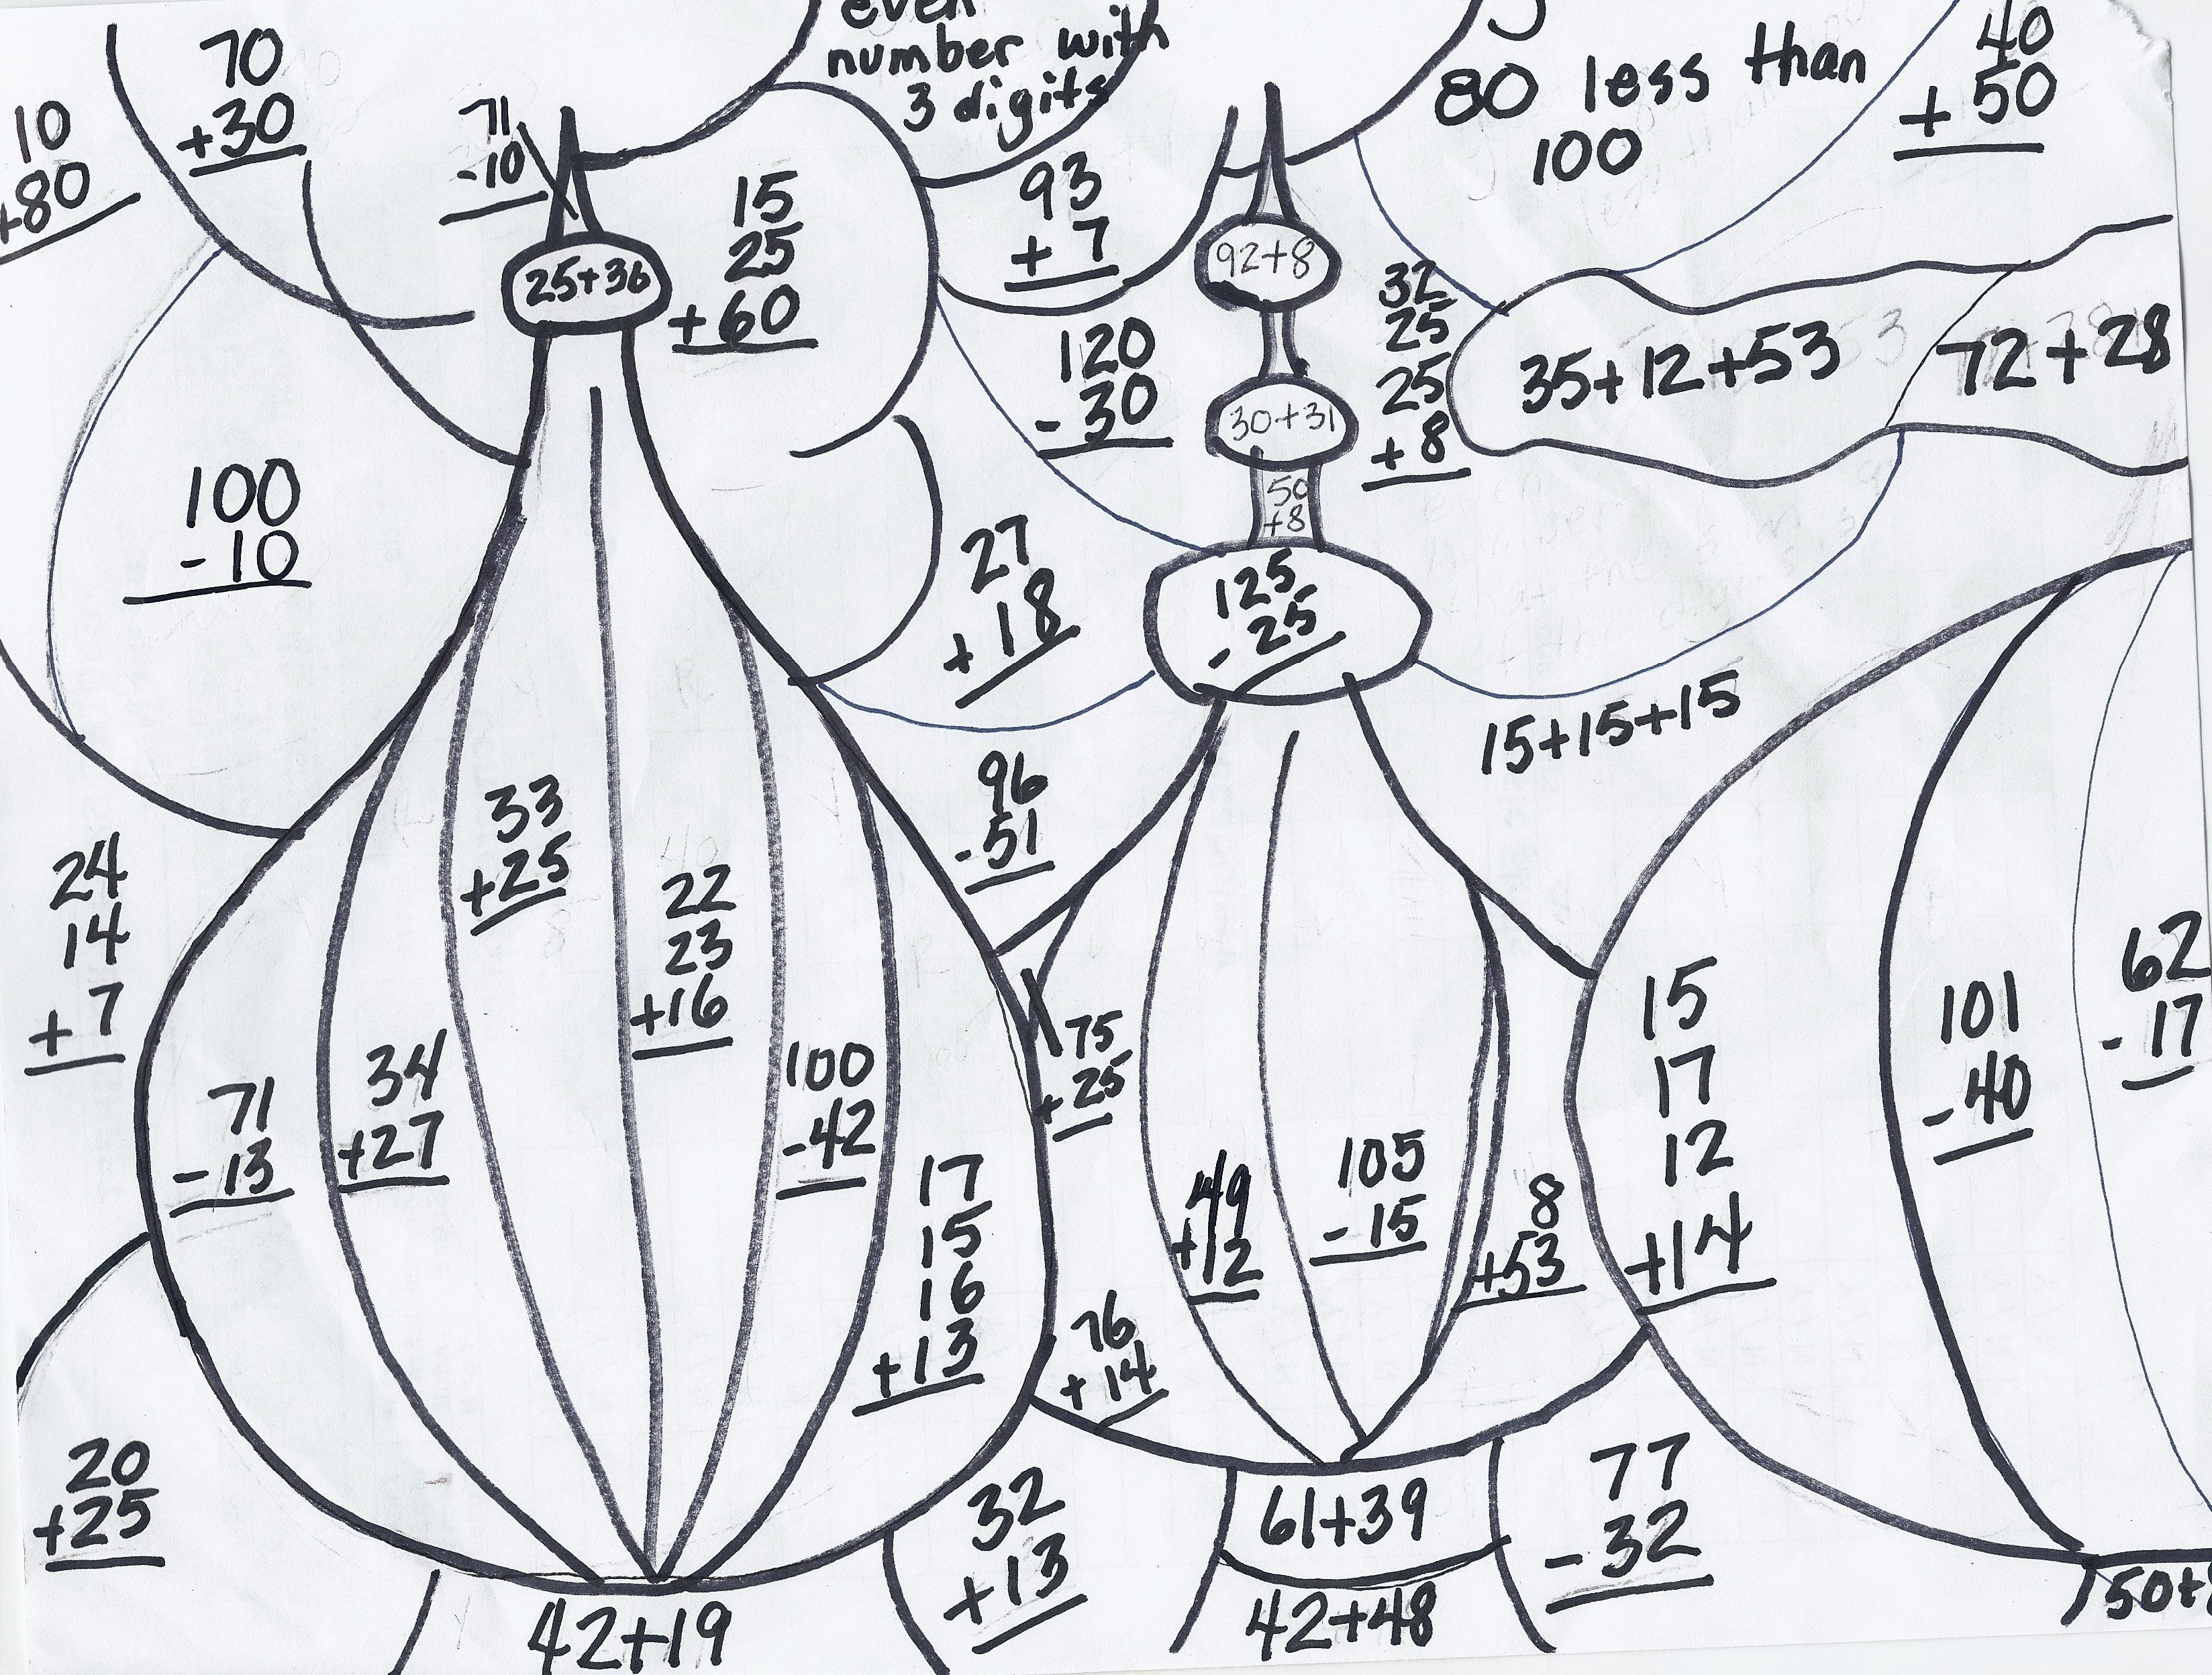 even
number with
3 digits
80 less than
100
40
+ 50
70
+30
10
+80
71
-10
15
25
+60
93
+ 7
92+8
25+36
120
- 30
32
25
25
+ 8
35+12+53
72+28
30+31
50
+8
100
- 10
27
+ 18
125
- 25
15+15+15
96
- 51
33
+25
22
23
+16
24
14
+ 7
34
+27
71
- 13
100
-42
17
15
16
+13
75
+ 25
49
+12
105
- 15
8
+53
15
17
12
+14
101
- 40
62
- 17
76
+ 14
20
+25
32
+ 13
61+39
77
- 32
42+19
42+48